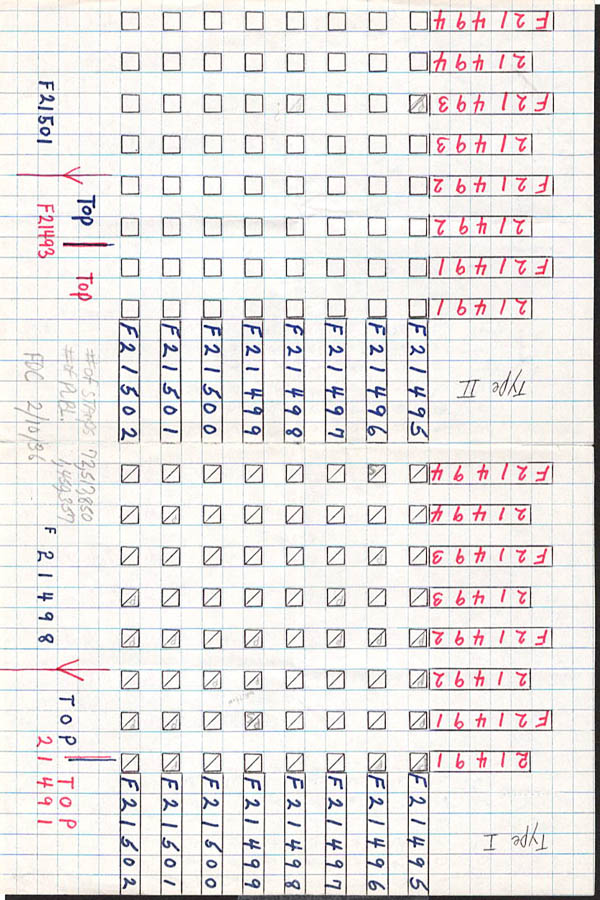 F21494
21494
F21493
21493
F21492
21492
F21491
21491
F21501
Top
F21493
Top
F21502
F21501
F21500
F21499
F21498
F21497
F21496
F21495
Type II
# of STAMPS
FDC 2/10/36
F21494
21494
F21493
21493
F21492
21492
F21491
21491
F21498
TOP
TOP
21491
F21502
F21501
F21500
F21499
F21498
F21497
F21496
F21495
Type I